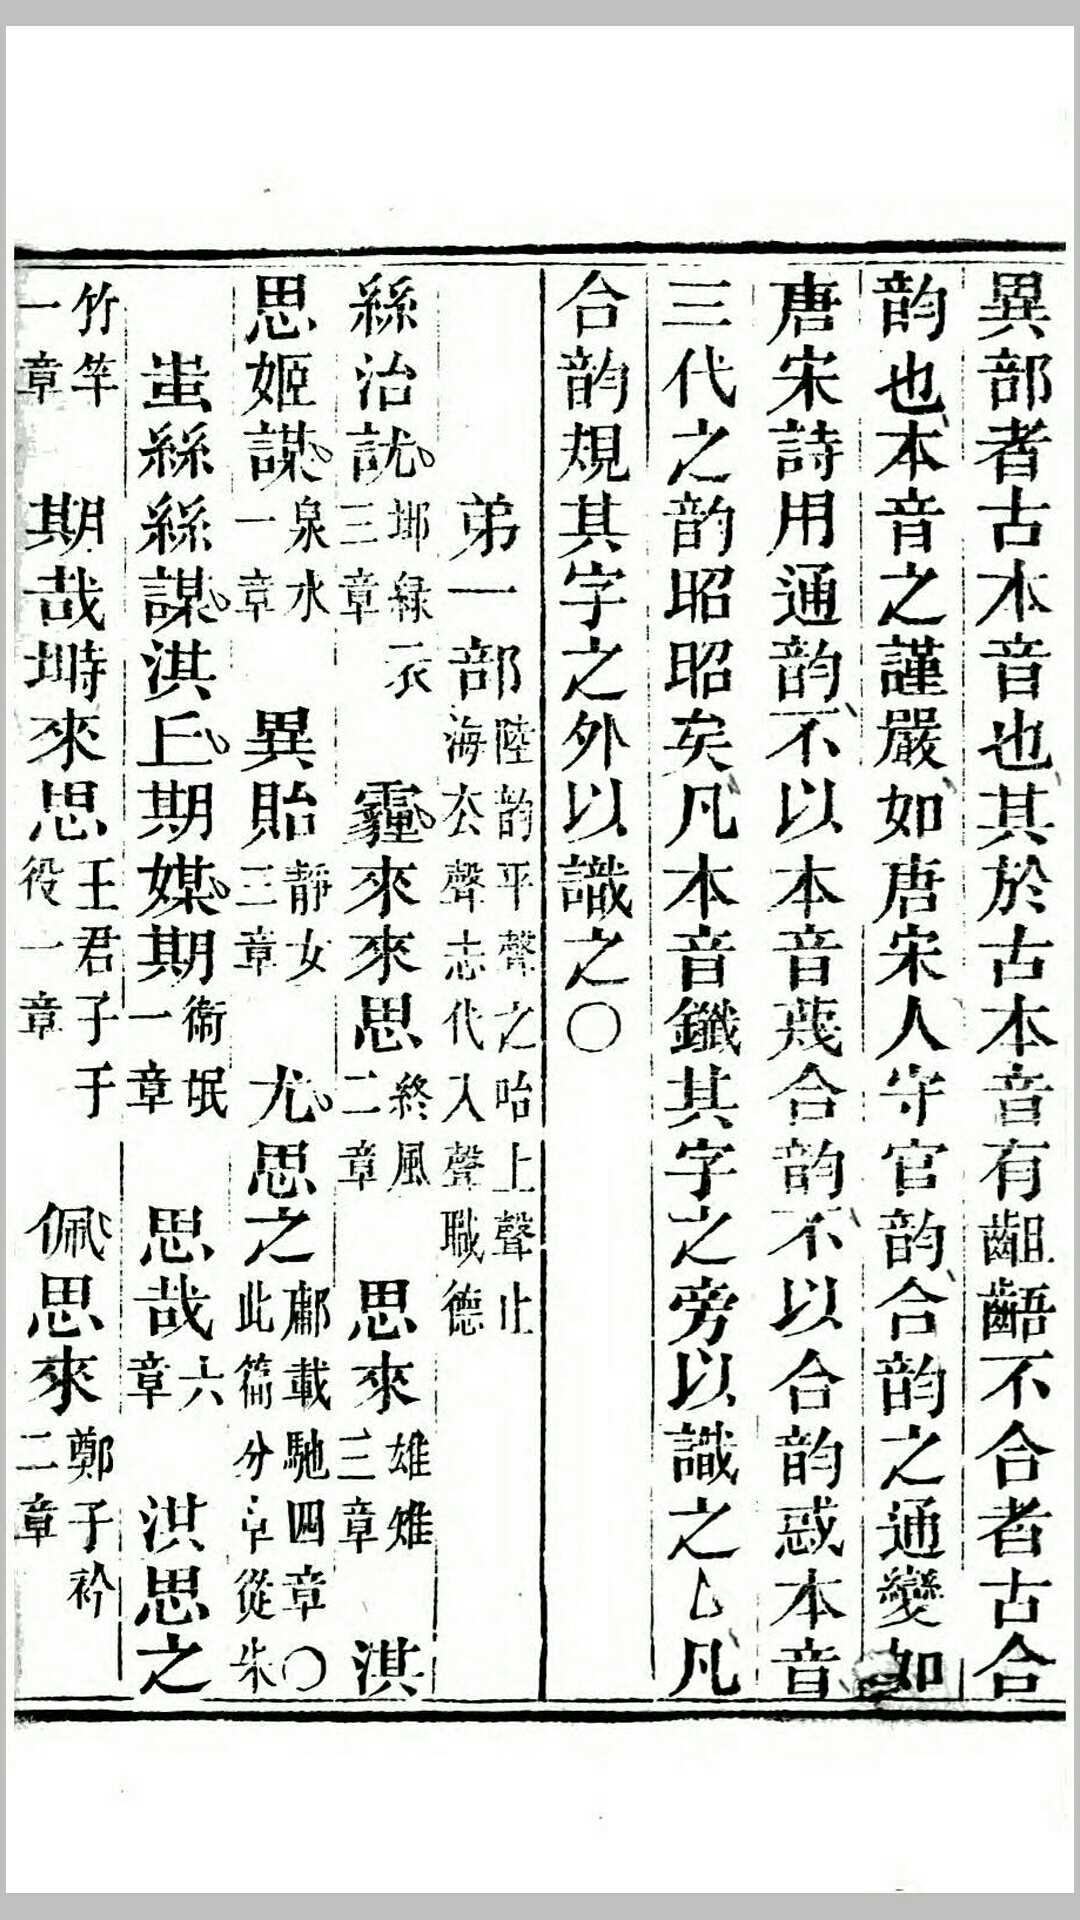 異部者古本音也其於古本音有齟齬不合者古合
韵也本音之謹嚴如唐宋人守官韵合韵之通變如
唐宋詩用通韵不以本音蔑合韵不以合韵惑本音
三代之韵昭昭矣凡本音鐵其字之旁以識之乚凡
合韵規其字之外以識之〇
弟一部陸韵平聲之咍上聲止海去聲志代入聲職德
絲治訧邶緑衣三章 霾來來思終風二章 思來雄雉三章 淇
思姬謀泉水一章 異貽靜女三章 尤思之鄘載馳四章〇此篇分章從朱
蚩絲絲謀淇丘期媒期衞氓一章 思哉六章 淇思之
竹竿一章 期哉塒來思王君子于役一章 佩思來鄭子衿二章